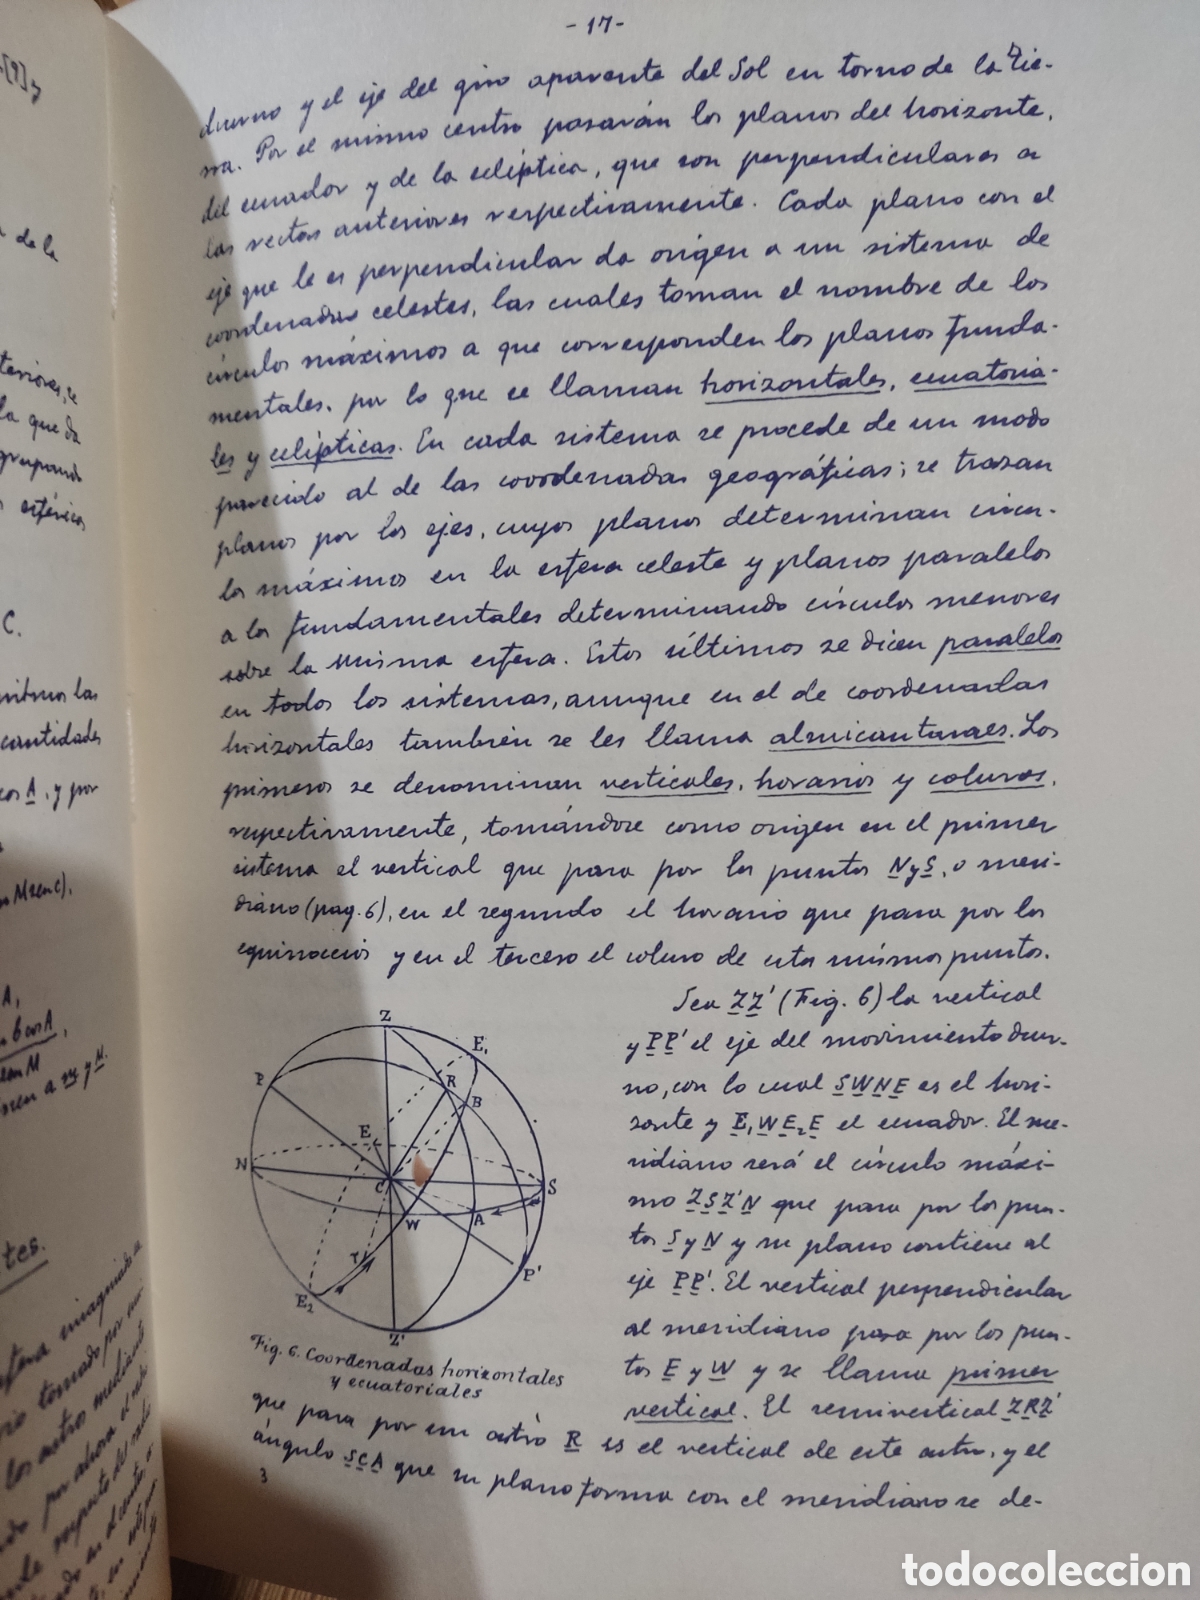 - 17 -
diurno y el eje del giro aparente del Sol en torno de la Tie-
rra. Por el mismo centro pasarán los planos del horizonte,
del ecuador y de la eclíptica, que son perpendiculares a
las rectas anteriores respectivamente. Cada plano con el
eje que le es perpendicular da origen a un sistema de
coordenadas celestes, las cuales toman el nombre de los
círculos máximos a que corresponden los planos funda-
mentales, por lo que se llaman horizontales, ecuatoria-
les y eclípticas. En cada sistema se procede de un modo
parecido al de las coordenadas geográficas; se trazan
planos por los ejes, cuyos planos determinan círcu-
los máximos en la esfera celeste y planos paralelos
a los fundamentales determinando círculos menores
sobre la misma esfera. Estos últimos se dicen paralelos
en todos los sistemas, aunque en el de coordenadas
horizontales también se les llama almicantaraes. Los
primeros se denominan verticales, horarios y coluros,
respectivamente, tomándose como origen en el primer
sistema el vertical que pasa por los puntos N y S, o meri-
diano (pag. 6), en el segundo el horario que pasa por los
equinoccios y en el tercero el coluro de estos mismos puntos.
Sea ZZ' (Fig. 6) la vertical
y PP' el eje del movimiento diur-
no, con lo cual SWNE es el hori-
zonte y E₁WE₂E el ecuador. El me-
ridiano será el círculo máxi-
mo ZSZ'N que pasa por los pun-
tos S y N y su plano contiene al
eje PP'. El vertical perpendicular
al meridiano pasa por los pun-
tos E y W y se llama primer
vertical. El semivertical ZRZ'
que pasa por un astro R es el vertical de este astro, y el
ángulo SCA que su plano forma con el meridiano se de-
3
Z
E₁
P
R
B
E
N
C
S
W
A
P'
E₂
Z'
Fig. 6. Coordenadas horizontales
y ecuatoriales
de la
teriores, se
la que da
grupando
esféricos
C.
las
cantidades
cos A, y por
A,
M
todocoleccion